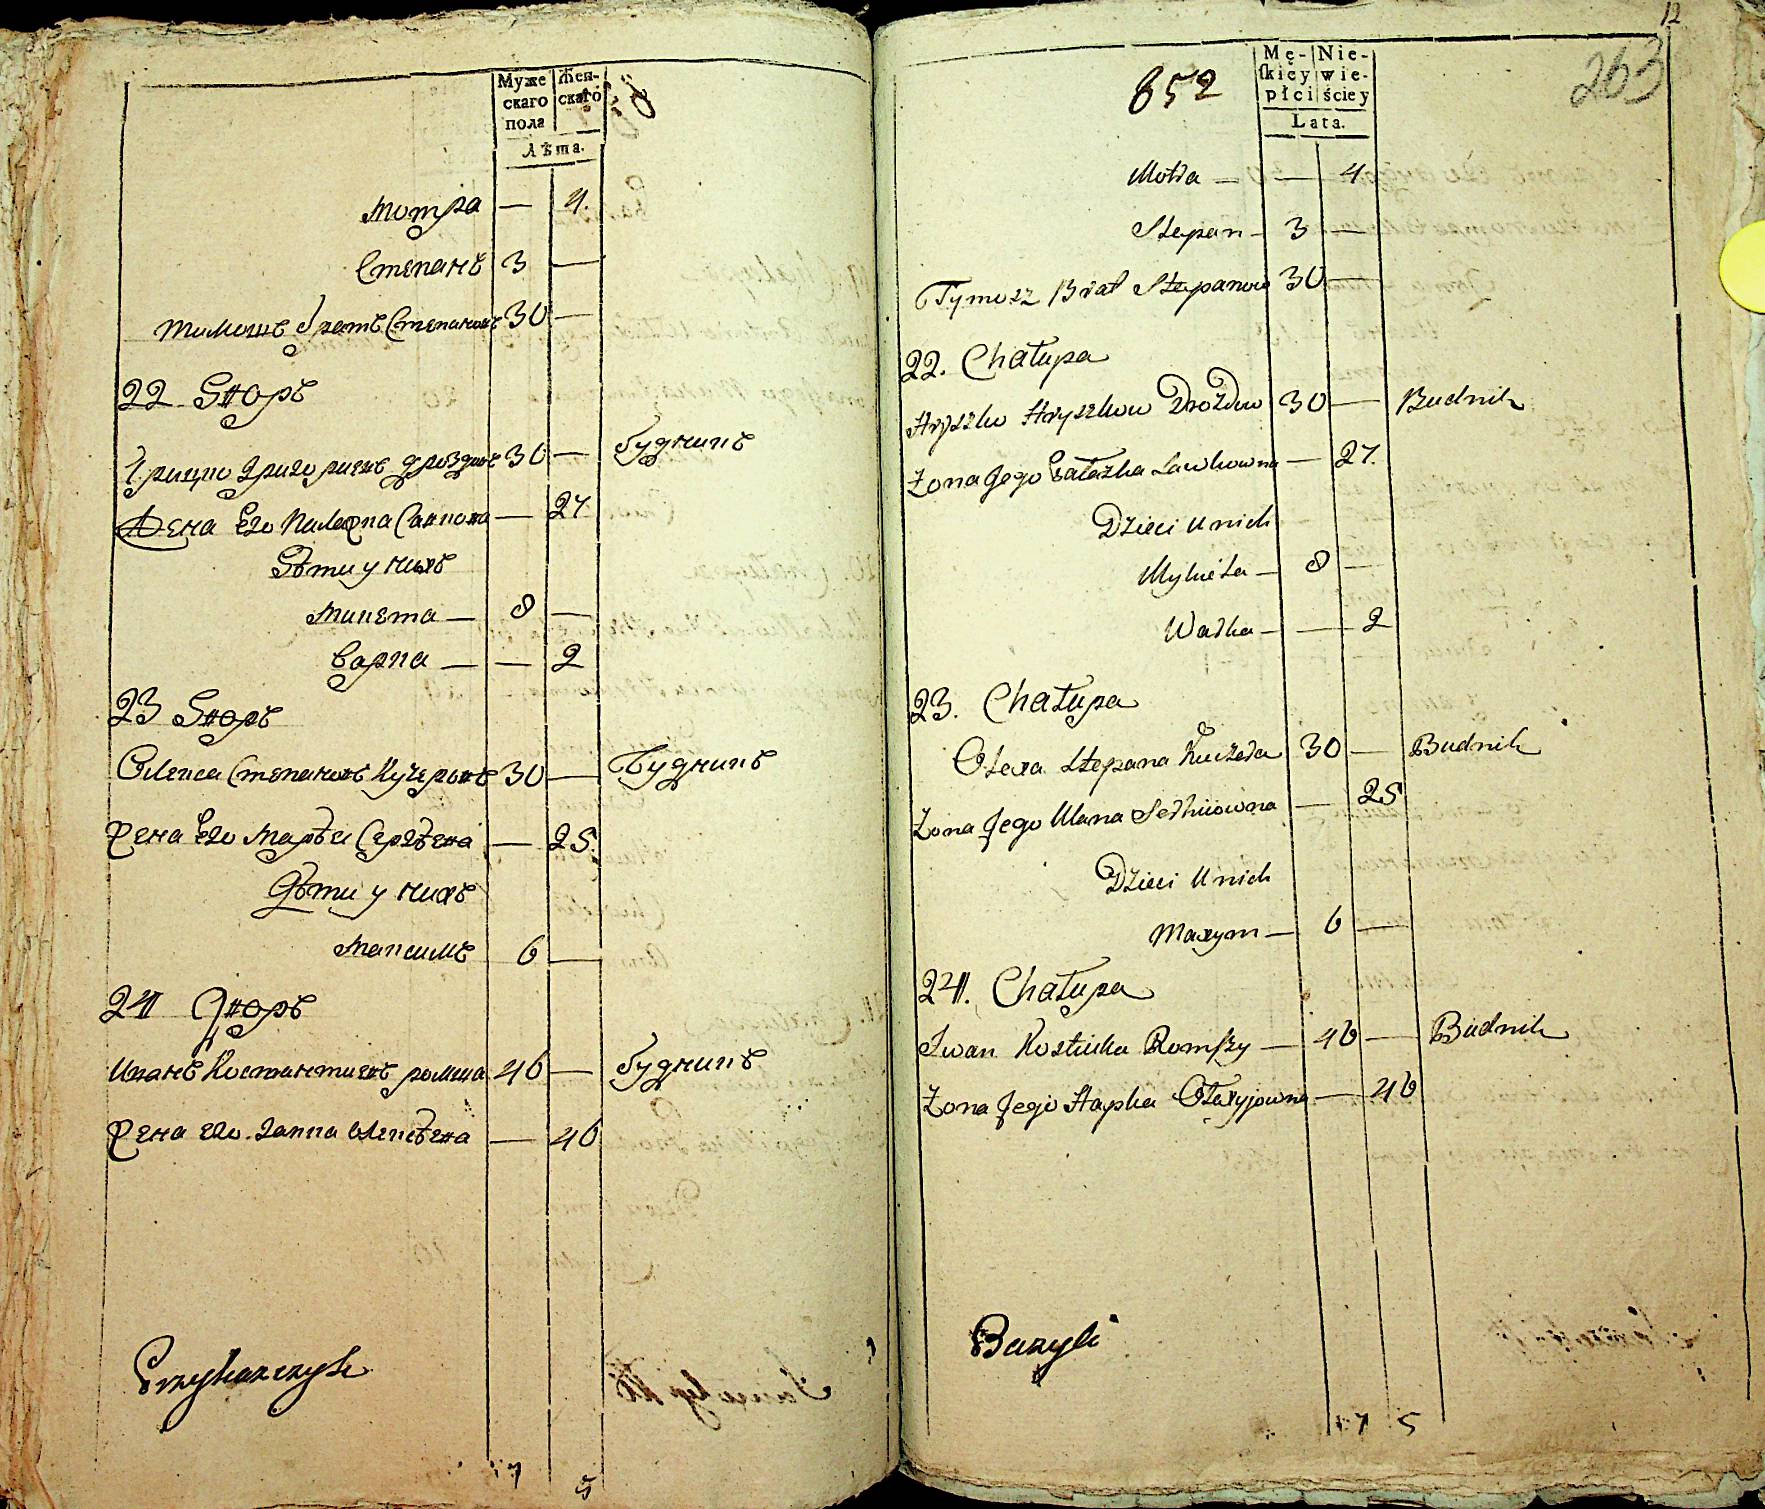 Муже
скаго
пола
Жен-
скаго
Лѣта.
Мотра — 4.
Степанъ 3 —
Тимошъ братъ Степановъ 30 —
22 Дворъ
Грицко Григориевъ Дроздовъ 30 — Будникъ
Жена Его Палажка Савкова — 27
Дѣти у нихъ
Микета — 8 —
Варка — — 2
23 Дворъ
Олекса Степановъ Кучеровъ 30 — Будникъ
Жена Его Сергѣева — 25.
Дѣти у нихъ
Максимъ 6 —
24 Дворъ
Иванъ Костантиевъ ромша 46 — Будникъ
Жена его Гапка Олексѣева — 46
7 5
12
263
652
Mę-
skiey
płci
Nie-
wie-
ściey
Lata.
Motra — — 4
Stepan — 3 —
Tymosz Brat Stepanow 30 —
22. Chałupa
Hryszko Hryszkow Drozdow 30 — Budnik
Żona Jego Pałażka Sawkowna — 27.
Dzieci u nich
Mykieta — 8 —
Warka — — 2
23. Chałupa
Olexa Stepana Kuczera 30 — Budnik
Żona Jego — 25
Dzieci u nich
Maxym — 6 —
24. Chałupa
Iwan Kostiuka Romszy — 46 — Budnik
Żona Jego Hapka Olexyjowna — 46
Bazyli
7 5